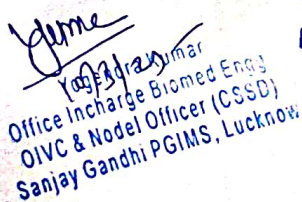 Yogendra Kumar
Office Incharge Biomed Engg
OIVC & Nodel Officer (CSSD)
Sanjay Gandhi PGIMS, Lucknow